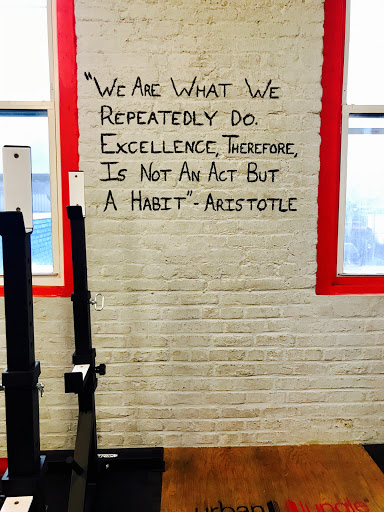 "WE ARE WHAT WE
REPEATEDLY DO.
EXCELLENCE, THEREFORE,
IS NOT AN ACT BUT
A HABIT"- ARISTOTLE
urban jungle